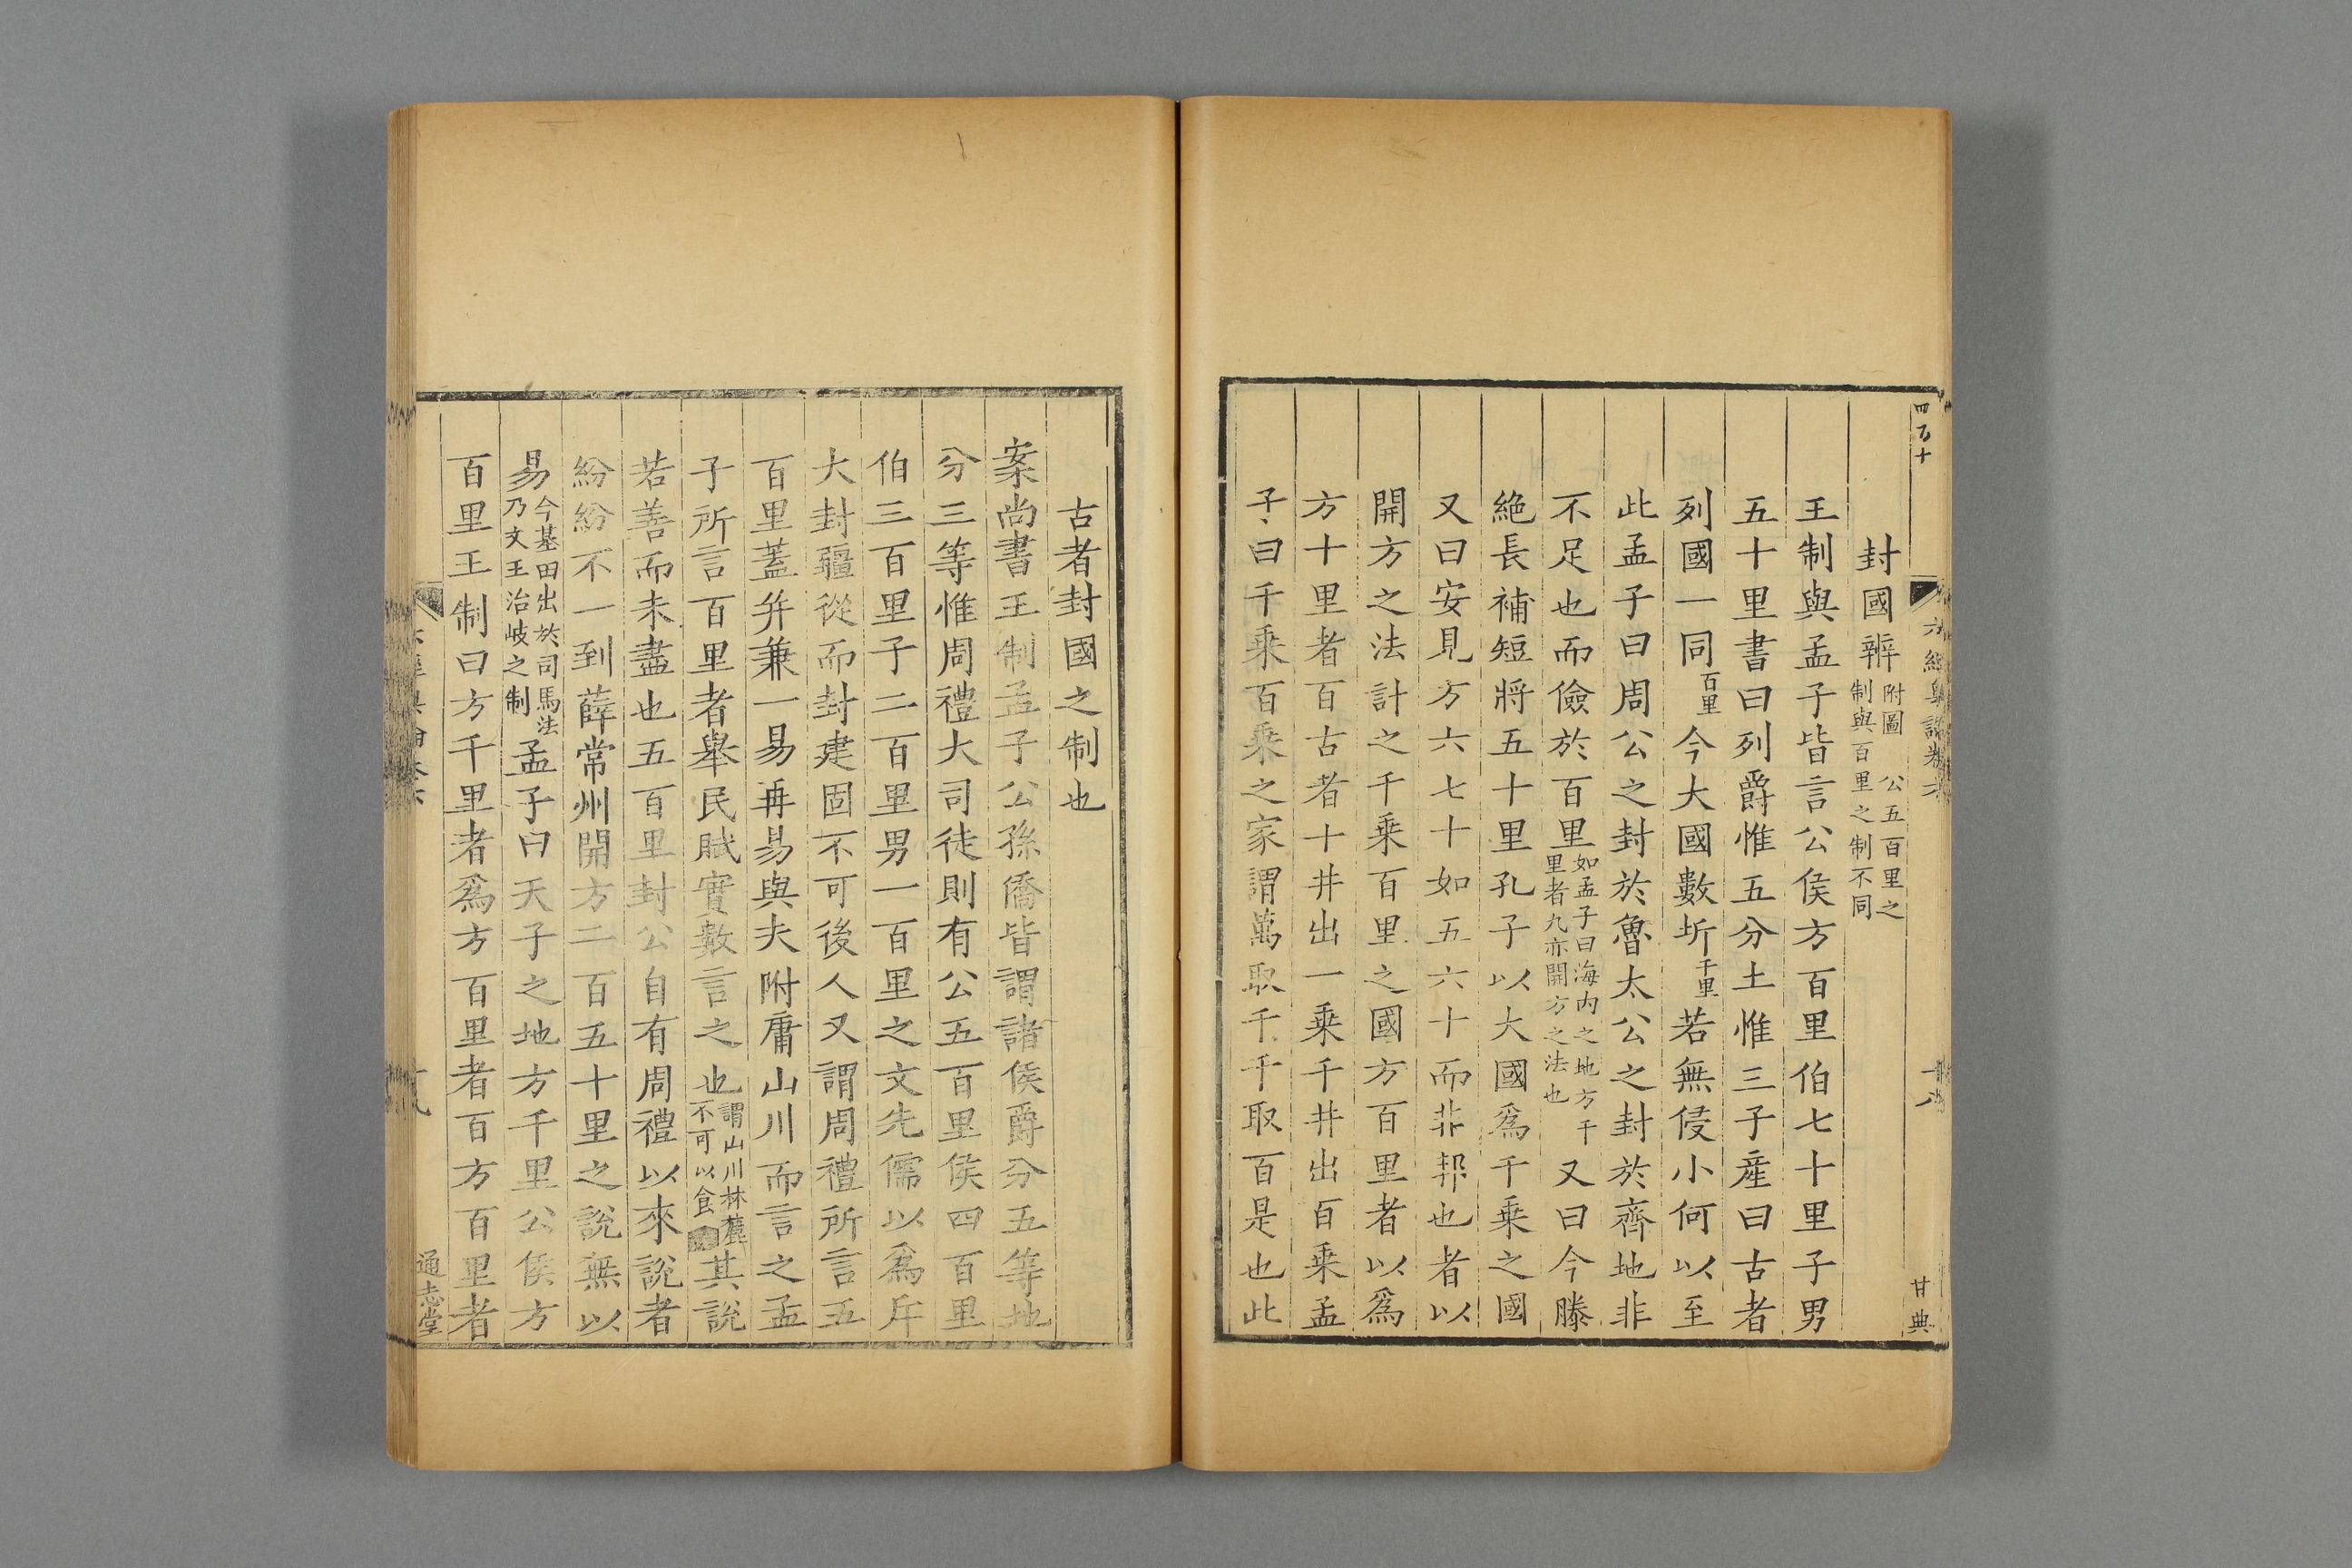 四百十
六經奧論卷六
甘典
封國辨附圖 公五百里之
制與百里之制不同
王制與孟子皆言公侯方百里伯七十里子男
五十里書曰列爵惟五分土惟三子產曰古者
列國一同百里今大國數圻千里若無侵小何以至
此孟子曰周公之封於魯太公之封於齊地非
不足也而儉於百里如孟子曰海內之地方千里者九亦開方之法也又曰今滕
絕長補短將五十里孔子以大國爲千乗之國
又曰安見方六七十如五六十而非邦也者以
開方之法計之千乗百里之國方百里者以爲
方十里者百古者十井出一乗千井出百乗孟
子曰千乗百乗之家謂萬取千千取百是也此
古者封國之制也
案尚書王制孟子公孫僑皆謂諸侯爵分五等地
分三等惟周禮大司徒則有公五百里侯四百里
伯三百里子二百里男一百里之文先儒以爲斥
大封疆從而封建固不可後人又謂周禮所言五
百里蓋并兼一易再易與夫附庸山川而言之孟
子所言百里者舉民賦實數言之也謂山川林麓不可以食其說
若善而未盡也五百里封公自有周禮以來說者
紛紛不一到薛常州開方二百五十里之說無以
易今基田出於司馬法乃文王治岐之制孟子曰天子之地方千里公侯方
百里王制曰方千里者爲方百里者百方百里者
通志堂